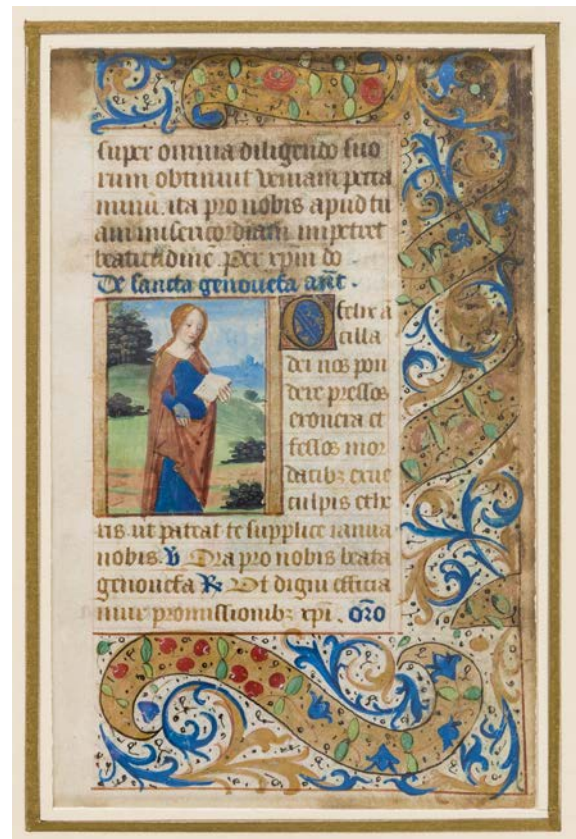 super omnia diligendo suo
rum obtinuit veniam pecca
minū. ita pro nobis apud tu
am misericordiam impetret
beatitudinē. Per xpm do
De sancta genouefa añt.
O felix ā
cilla
dei nos pon
dere pressos
exonera et
fessos mor
datibꝫ exue
culpis ethe
ris ut pateat te supplice ianua
nobis. V Ora pro nobis beata
genouefa R Ut digni efficia
mur promissionibꝫ xpi. oro